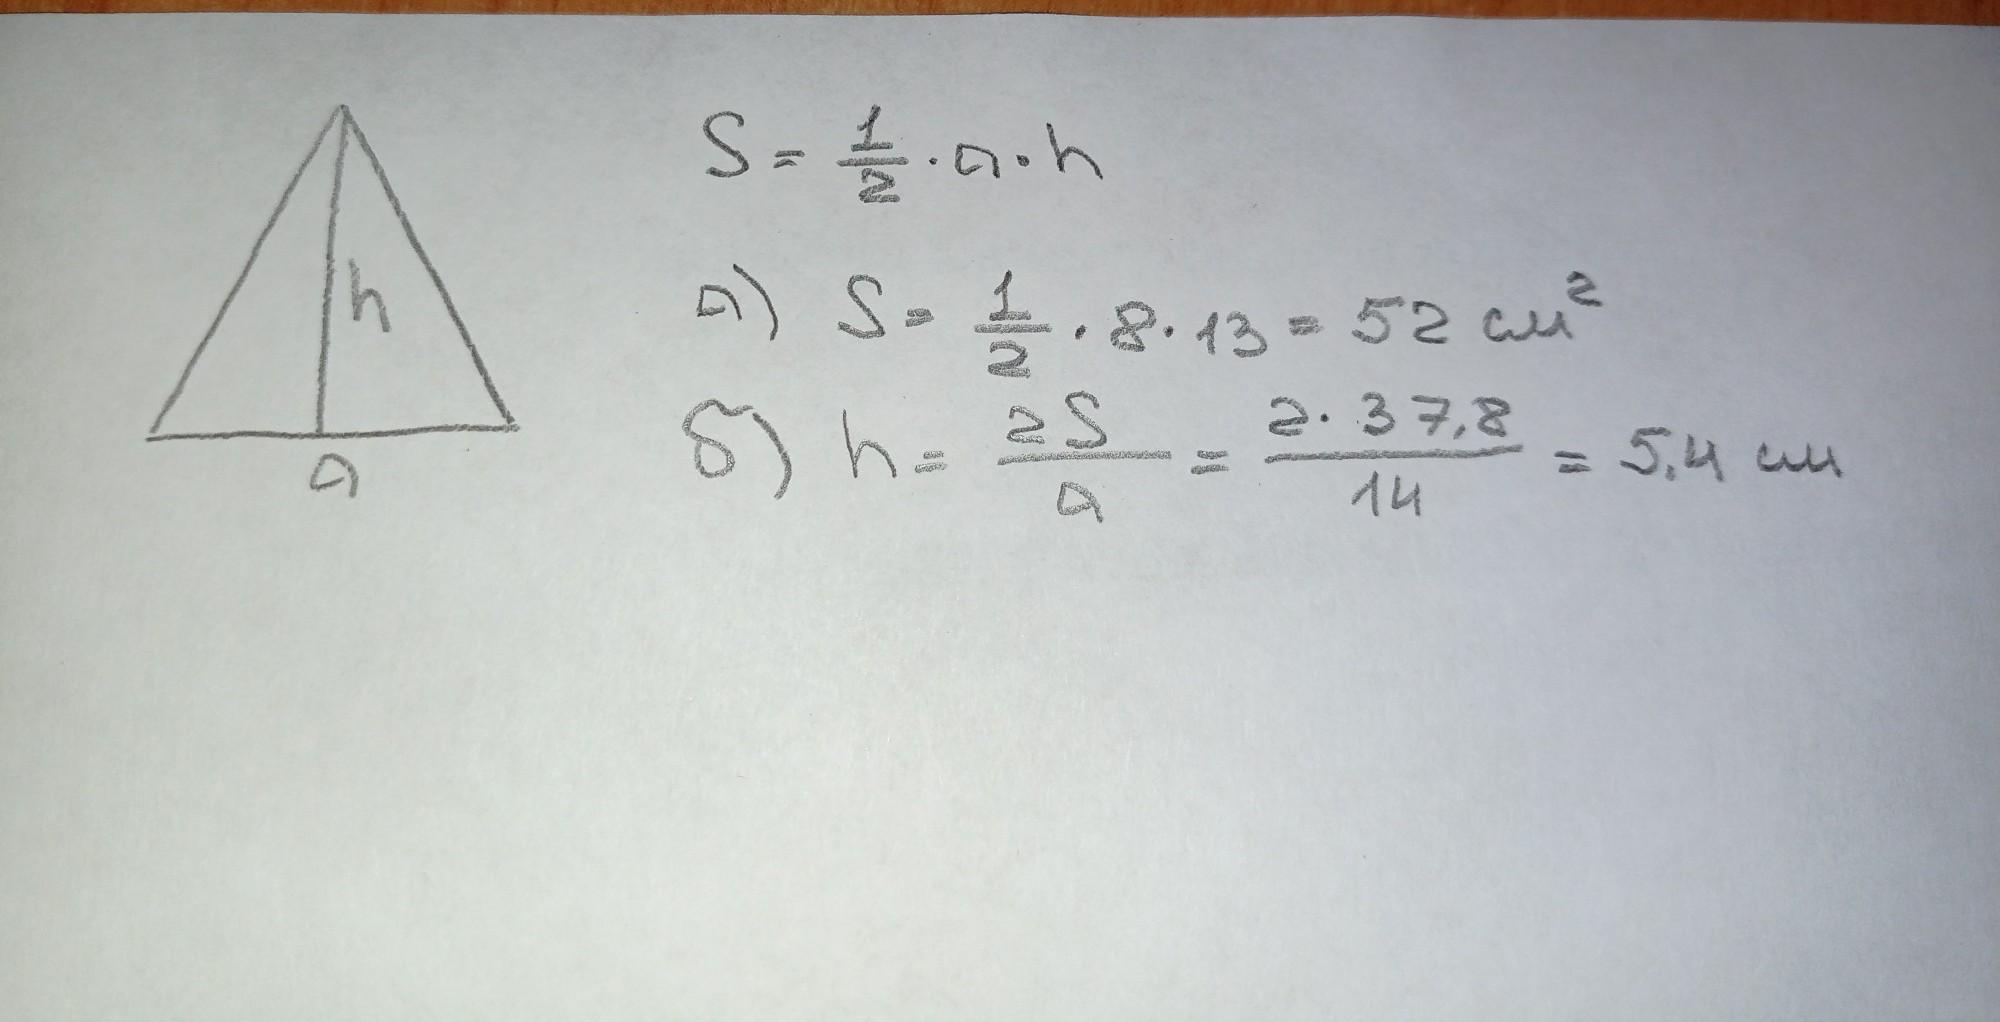 S = 1/2 · a · h
h
a) S = 1/2 · 8 · 13 = 52 см²
б) h = 2S/a = 2 · 37,8/14 = 5,4 см
a